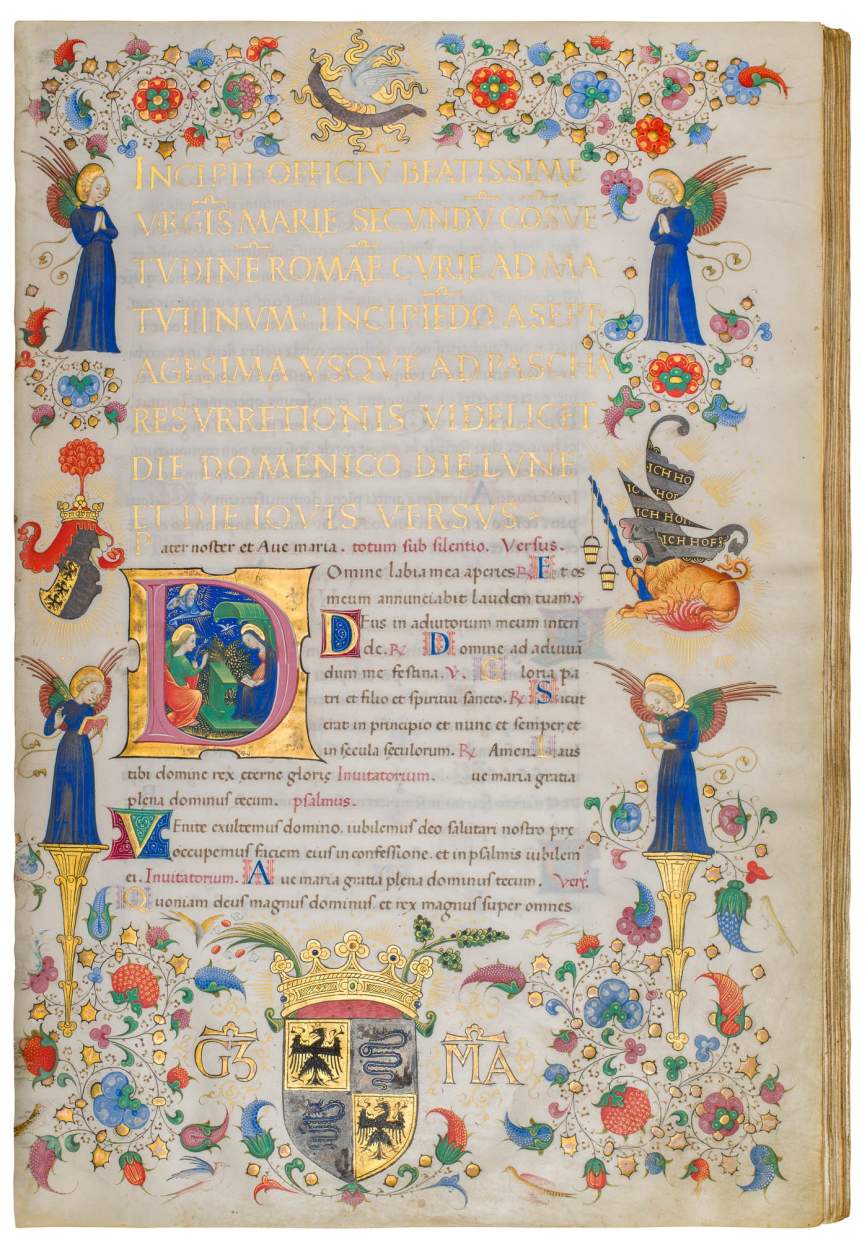 INCIPIT OFFICIV BEATISSIME
VIRGIS MARIE SECVNDV COSVE
TVDINE ROMAE CVRIE AD MA
TVTINVM. INCIPIEDO A SEPT
AGESIMA VSQVE AD PASCHA
RESVRRETIONIS VIDELICET
DIE DOMENICO DIE LVNE
ET DIE IOVIS. VERSVS.
Pater noster et Aue maria. totum sub silentio. Versus.
Domine labia mea aperies. R. Et os
meum annunciabit laudem tuam. v
Deus in adiutorum meum inten
de. R. Domine ad adiuuā
dum me festina. V. Gloria pa
tri et filio et spiritui sancto. R. Sicut
erat in principio et nunc et semper, et
in secula seculorum. R. Amen. Laus
tibi domine rex eterne glorię Inuitatorium. ue maria gratia
plena dominus tecum. psalmus.
Venite exultemus domino. iubilemus deo salutari nostro pre
occupemus faciem eius in confessione. et in psalmis iubilem
ei. Inuitatorium. Aue maria gratia plena dominus tecum. Vers.
Quoniam deus magnus dominus. et rex magnus super omnes
ICH HO
ICH HOF
ICH HOF
ICH HOF
G3 MA